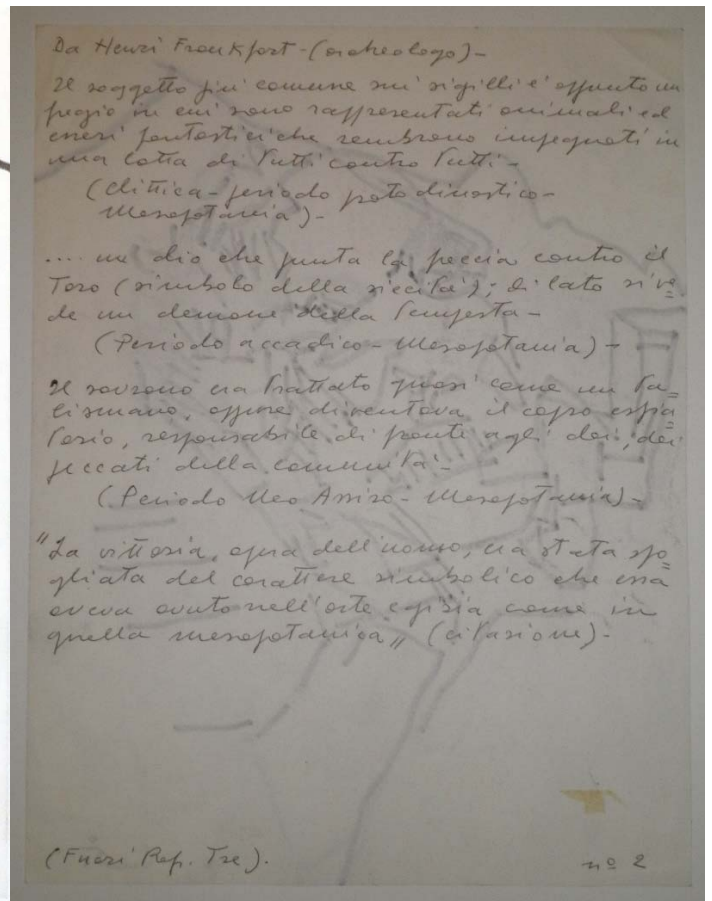 Da Henri Frankfort - (archeologo) -
Il soggetto più comune sui sigilli è appunto un
fregio in cui sono rappresentati animali ed
esseri fantastici che sembrano impegnati in
una lotta di tutti contro tutti -
(Glittica - periodo protodinastico -
Mesopotamia) -
.... un dio che punta la freccia contro il
Toro (simbolo della siccità); di lato si ve=
de un demone della Tempesta -
(Periodo accadico - Mesopotamia) -
Il sovrano era trattato quasi come un ta=
lismano, oppure diventava il capro espia
torio, responsabile di fronte agli dei, dei
peccati della comunità -
(Periodo Neo Assiro - Mesopotamia) -
"La vittoria, opera dell'uomo, era stata spo=
gliata del carattere simbolico che essa
aveva avuto nell'arte egizia come in
quella mesopotamica„ (citazione) -
(Fuori Rep. Tre).
nº 2